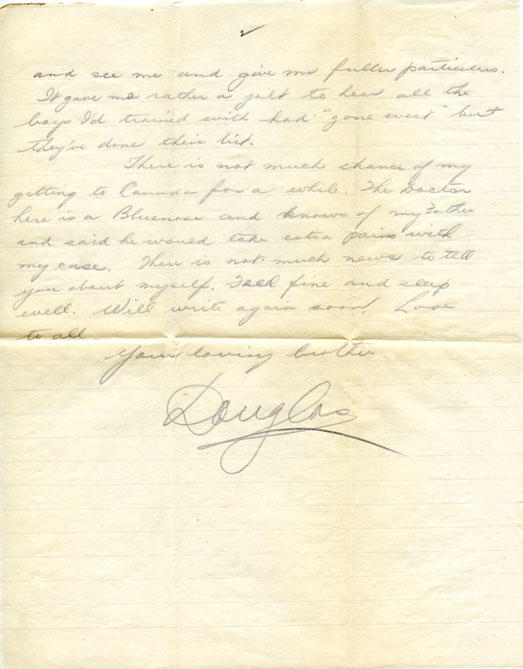 2
and see me and give me fuller particulars.
It gave me rather a jolt to hear all the
boys I'd trained with had "gone west" but
they've done their bit.
There is not much chance of my
getting to Canada for a while. The Doctor
here is a Bluenose and knows of my Father
and said he would take extra pains with
my case. There is not much news to tell
you about myself. I eat fine and sleep
well. Will write again soon. Love
to all
Your loving brother
Douglas